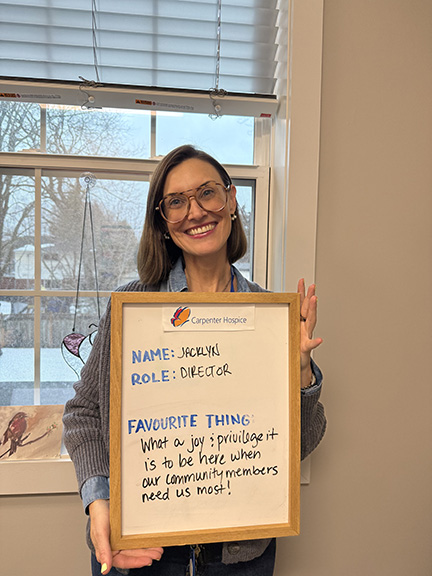 Carpenter Hospice
NAME: JACKLYN
ROLE: DIRECTOR
FAVOURITE THING:
What a joy & privilege it
is to be here when
our community members
need us most!